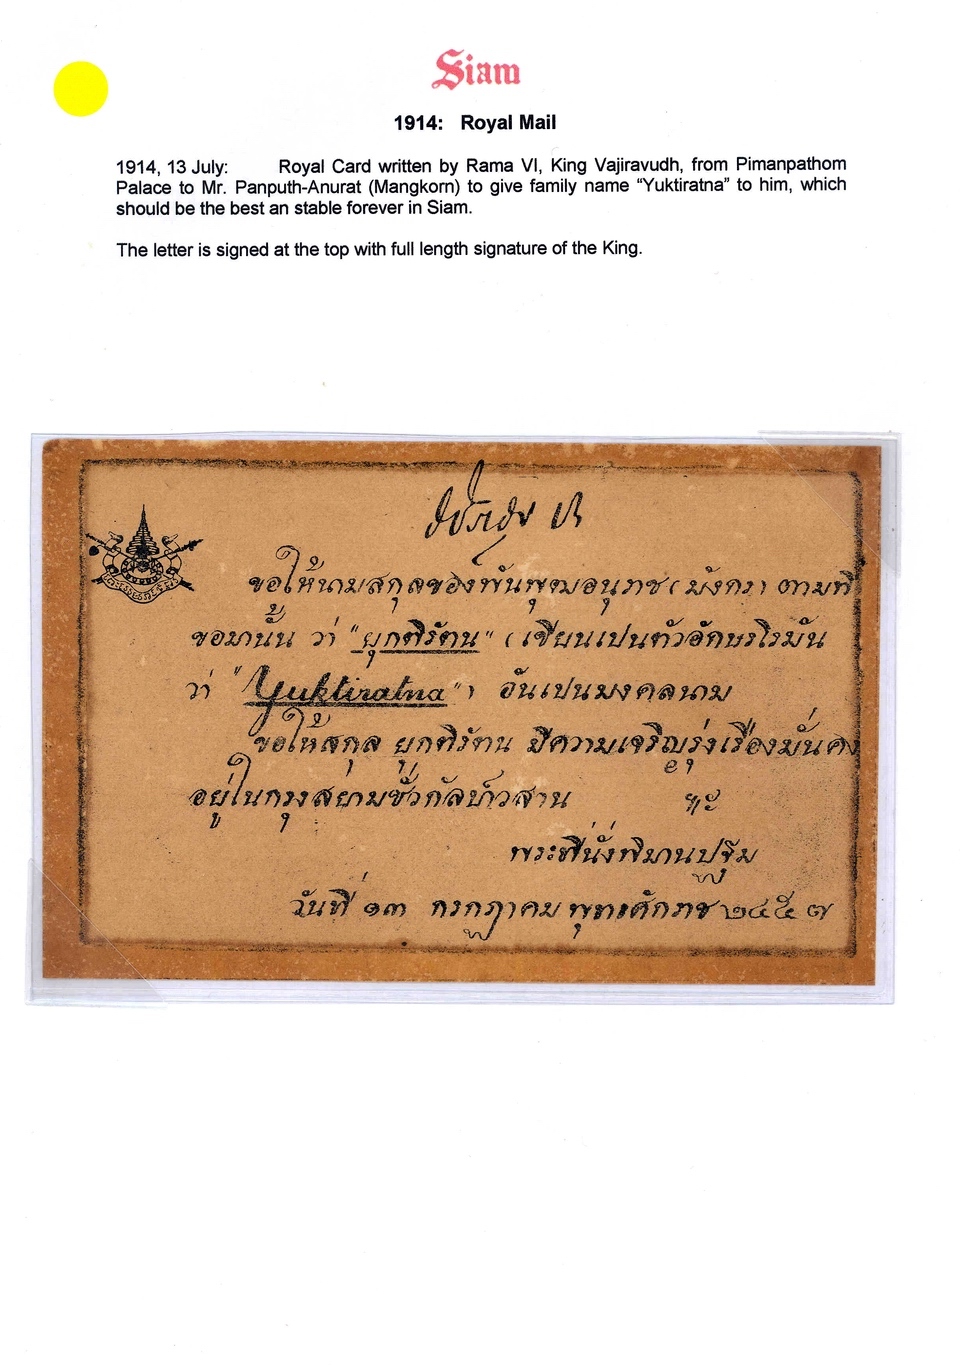 Siam
1914: Royal Mail
1914, 13 July: Royal Card written by Rama VI, King Vajiravudh, from Pimanpathom
Palace to Mr. Panputh-Anurat (Mangkorn) to give family name “Yuktiratna” to him, which
should be the best an stable forever in Siam.
The letter is signed at the top with full length signature of the King.
ขอให้นามสกุลของพันพุฒอนุราช (มังกร) ตามที่
ขอมานั้น ว่า "ยุกติรัตน" (เขียนเปนตัวอักษรโรมัน
ว่า "Yuktiratna") อันเปนมงคลนาม
ขอให้สกุล ยุกติรัตน มีความเจริญรุ่งเรืองมั่นคง
อยู่ในกรุงสยามชั่วกัลปาวสาน ๚ะ
พระที่นั่งพิมานปฐม
วันที่ ๑๓ กรกฎาคม พุทธศักราช ๒๔๕๗